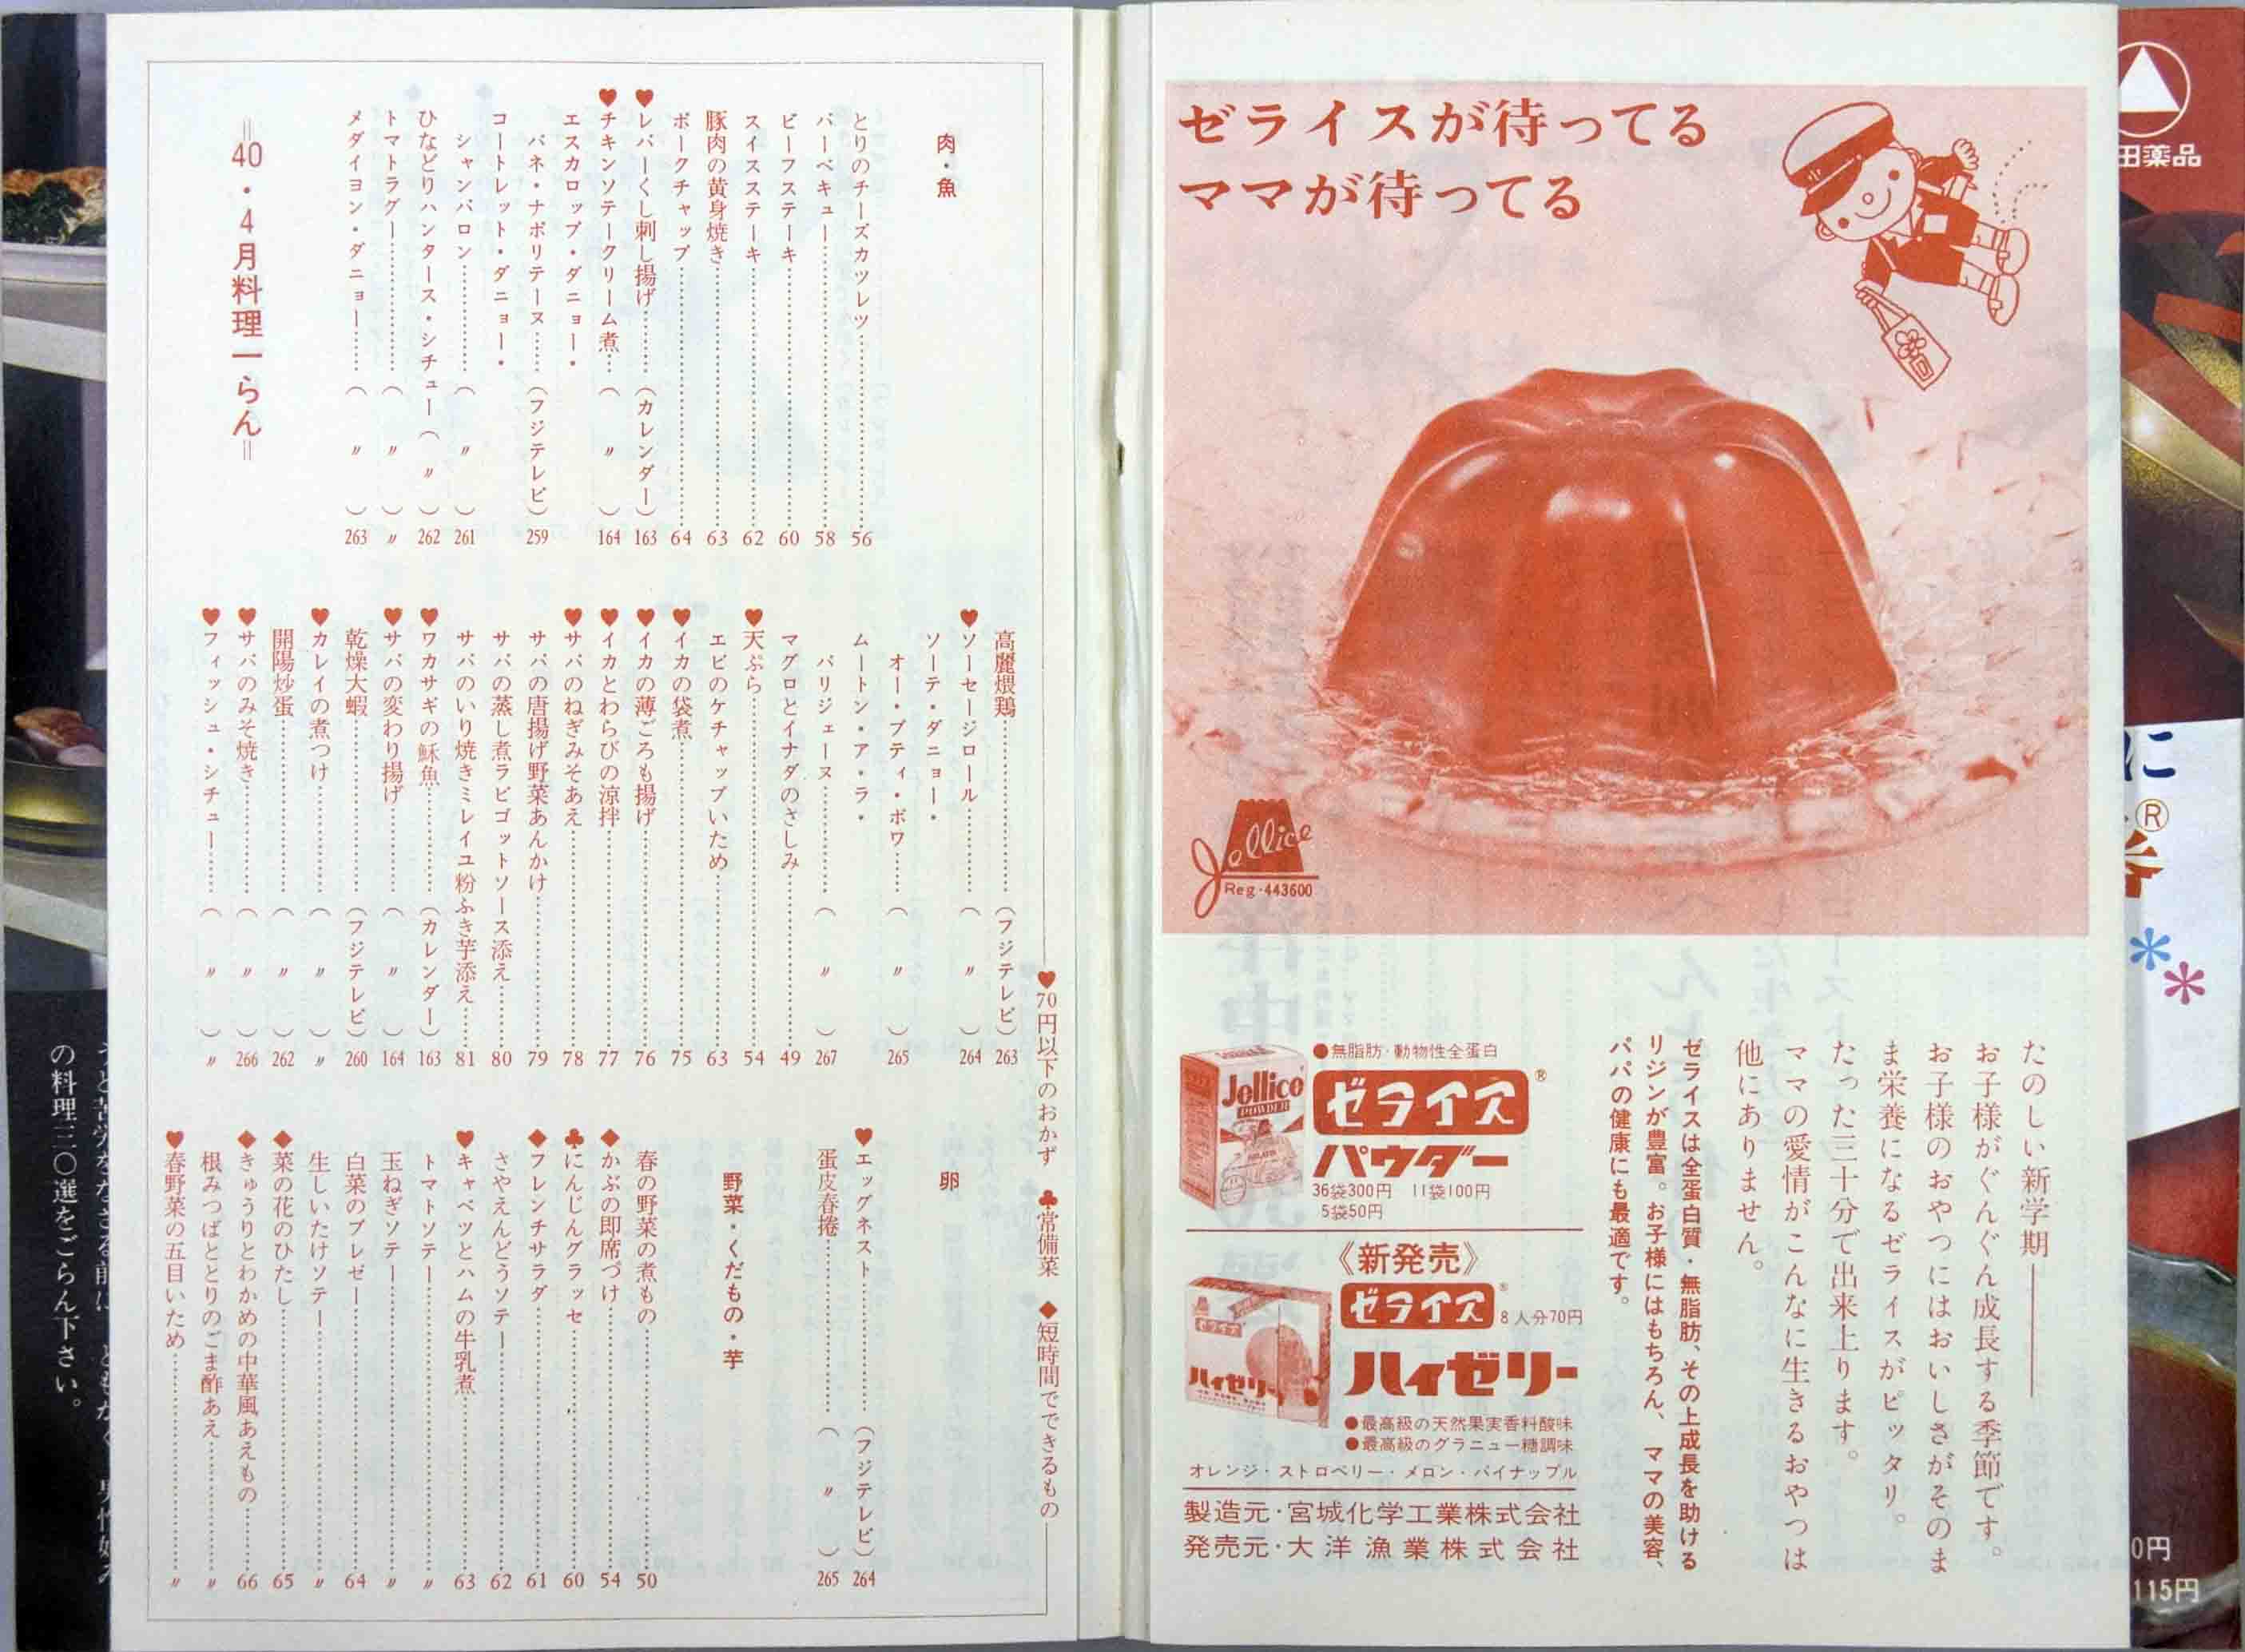 ゼライスが待ってる
ママが待ってる
Jellice
Reg・443600
たのしい新学期――
お子様がぐんぐん成長する季節です。
お子様のおやつにはおいしさがそのま
ま栄養になるゼライスがピッタリ。
たった三十分で出来上ります。
ママの愛情がこんなに生きるおやつは
他にありません。
ゼライスは全蛋白質・無脂肪、その上成長を助ける
リジンが豊富。お子様にはもちろん、ママの美容、
パパの健康にも最適です。
●無脂肪・動物性全蛋白
ゼライス®
パウダー
36袋300円 11袋100円
5袋50円
Jellice
POWDER
《新発売》
ゼライス® 8人分70円
ハイゼリー
ゼライス
ハイゼリー
●最高級の天然果実香料酸味
●最高級のグラニュー糖調味
オレンジ・ストロベリー・メロン・パイナップル
製造元・宮城化学工業株式会社
発売元・大洋漁業株式会社
♥70円以下のおかず ♣常備菜 ◆短時間でできるもの
肉・魚
とりのチーズカツレツ……56
バーベキュー……58
ビーフステーキ……60
スイスステーキ……62
豚肉の黄身焼き……63
ポークチャップ……64
♥レバーくし刺し揚げ……(カレンダー)163
♥チキンソテークリーム煮…(〃)164
エスカロップ・ダニョー・
パネ・ナポリテーヌ……(フジテレビ)259
コートレット・ダニョー・
シャンバロン……(〃)261
ひなどりハンタース・シチュー(〃)262
トマトラグー……(〃)〃
メダイヨン・ダニョー……(〃)263
=40・4月料理一らん=
高麗煨鶏……(フジテレビ)263
♥ソーセージロール……(〃)264
ソーテ・ダニョー・
オー・プティ・ポワ……(〃)265
ムートン・ア・ラ・
パリジェーヌ……(〃)267
マグロとイナダのさしみ……49
♥天ぷら……54
エビのケチャップいため……63
♥イカの袋煮……75
♥イカの薄ごろも揚げ……76
♥イカとわらびの涼拌……77
♥サバのねぎみそあえ……78
サバの唐揚げ野菜あんかけ……79
サバの蒸し煮ラビゴットソース添え……80
サバのいり焼きミレイユ粉ふき芋添え…81
♥ワカサギの穌魚……(カレンダー)163
♥サバの変わり揚げ……(〃)164
乾燥大蝦……(フジテレビ)260
♥カレイの煮つけ……(〃)〃
開陽炒蛋……(〃)262
♥サバのみそ焼き……(〃)266
♥フィッシュ・シチュー……(〃)〃
卵
♥エッグネスト……(フジテレビ)264
蛋皮春捲……(〃)265
野菜・くだもの・芋
春の野菜の煮もの……50
◆かぶの即席づけ……54
♣にんじんグラッセ……60
◆フレンチサラダ……61
さやえんどうソテー……62
♥キャベツとハムの牛乳煮……63
トマトソテー……〃
玉ねぎソテー……〃
白菜のブレゼー……64
生しいたけソテー……〃
◆菜の花のひたし……65
◆きゅうりとわかめの中華風あえもの……66
根みつばととりのごま酢あえ……〃
♥春野菜の五目いため……〃
の料理三〇選をごらん下さい。
田薬品
に
®
0円
115円